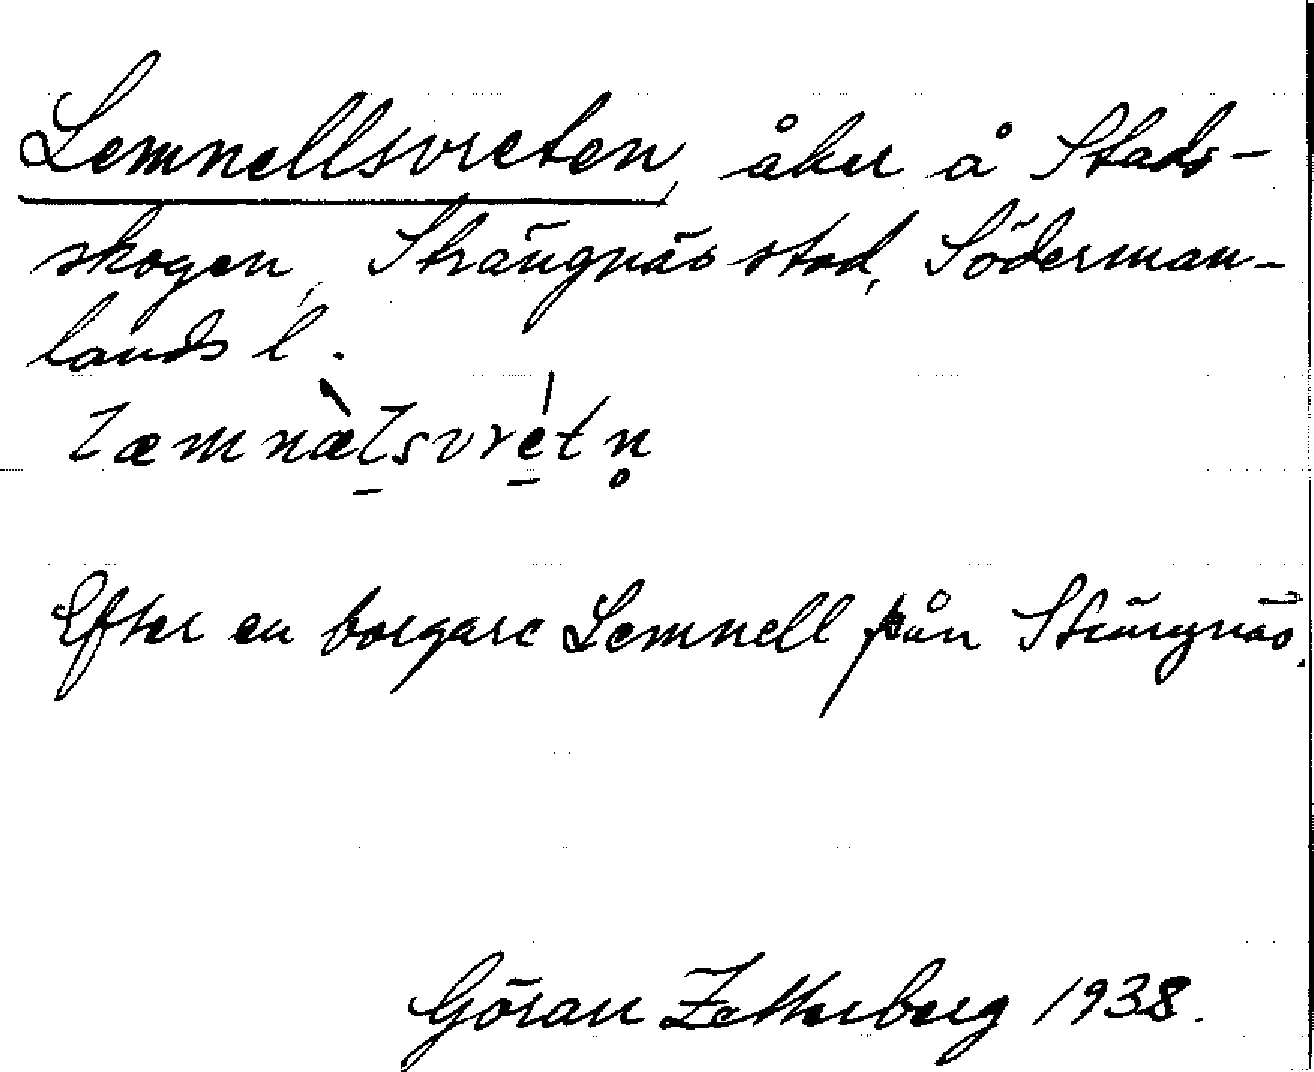 Lemnellsvreten, åker å Stads-
skogen, Strängnäs stad, Söderman-
lands l.
læmnæ̀lsvrétn̥
Efter en borgare Lemnell från Strängnäs.
Göran Zetterberg 1938.